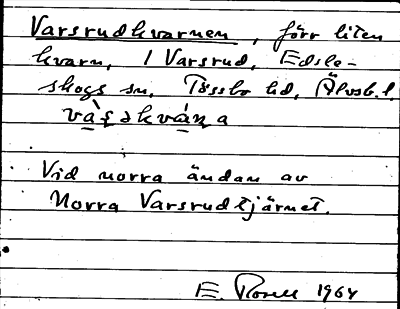 Varsrudkvarnen, förr liten
kvarn, i Varsrud, Edsle-
skogs sn, Tössbo hd, Älvsb. l.
vàṣəkvána
Vid norra ändan av
Norra Varsrudtjärnet.
E. Rosell 1964